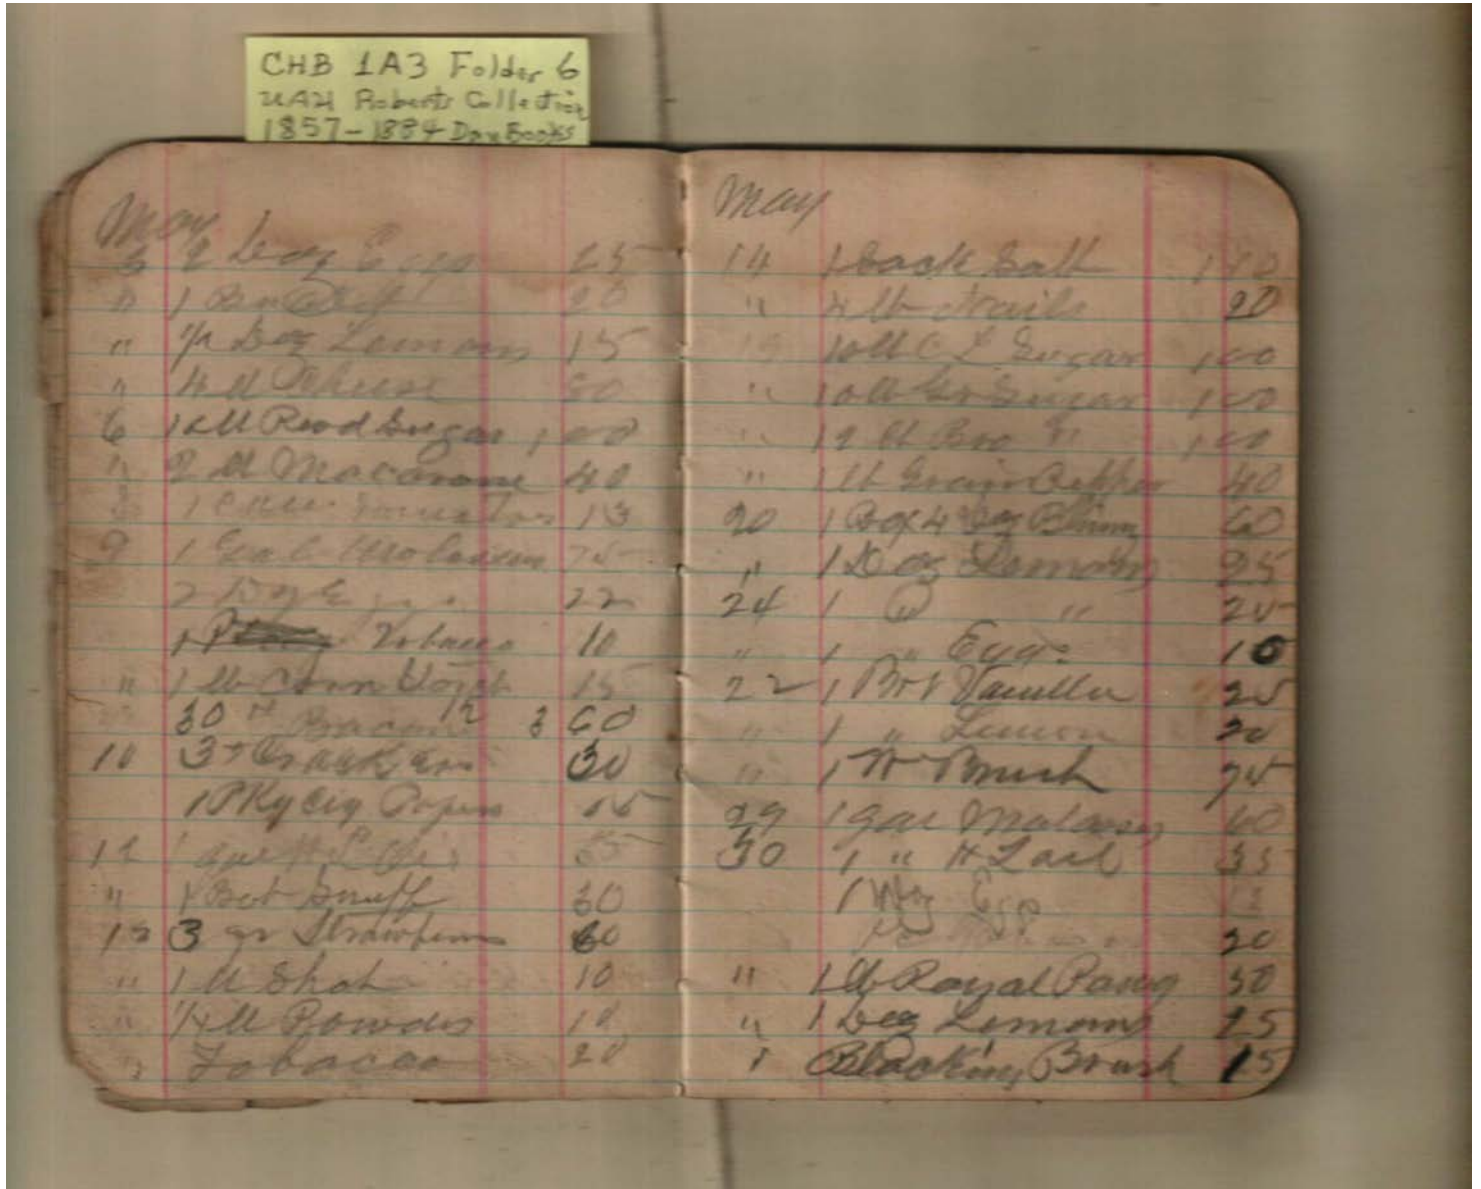 CHB 1A3 Folder 6
UAH Roberts Collection
1857-1884 Day Books
May
5 2 Doz Eggs 25
" 1 20
" 1/2 Doz Lemons 15
" 4 lb Cheese 80
6 lb Sugar 1 00
" 2 lb Macarone 40
1 13
9 1 Gal Molasses 75
2 Doz E 22
1 Tobacco 10
" 1 lb Corn 15
30 " Bacon 3 60
10 3 " Crackers 30
1 Pkg Cig Papers 15
12 1
" 1 Bot Snuff 30
3 qr 60
" 1 lb Shot 10
" 1/4 lb Powder 10
" Tobacco 20
May
14 1 Sack Salt 1
" 4 lb Nails 20
10 lb C L Sugar 1 00
" 10 lb Gr Sugar 1 00
" 12 lb 1 00
" 1 lb Grain Pepper 40
20 1 Box 4 Doz 60
" 1 Doz Lemons 25
24 1 D " 25
" 1 " Eggs 10
22 1 Bot Vanilla 25
" 1 " Lemon 20
" 1 W Brush 75
29 1 gal Molasses 60
30 1 " 35
1 Doz Egg
20
" 1 lb Royal 50
" 1 Doz Lemons 25
" Blacking Brush 15